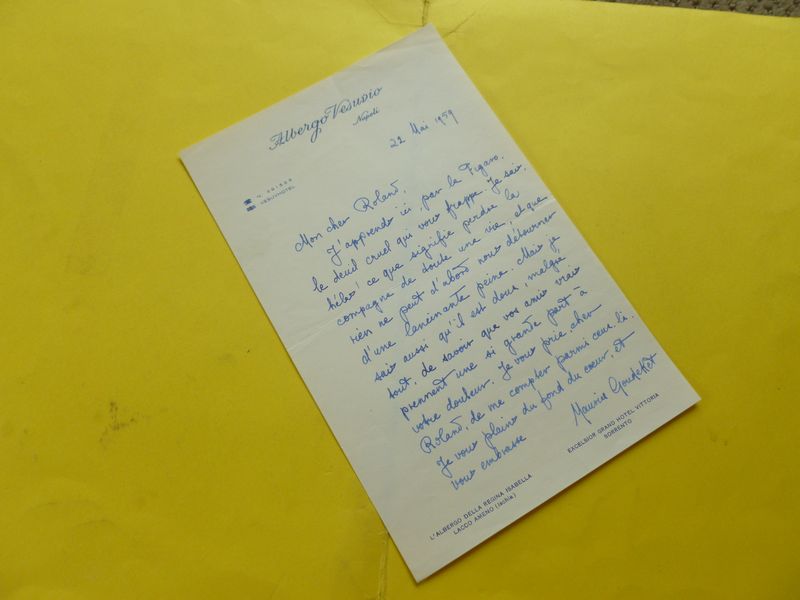 Albergo Vesuvio
Napoli
22 Mai 1959
VESUVHOTEL
Mon cher Roland,
J'apprends ici, par le Figaro,
le deuil cruel qui vous frappe. Je sais,
hélas! ce que signifie perdre la
compagne de toute une vie, et que
rien ne peut d'abord nous détourner
d'une lancinante peine. Mais je
sais aussi qu'il est doux, malgré
tout, de savoir que vos amis vrais
prennent une si grande part à
votre douleur. Je vous prie, cher
Roland, de me compter parmi ceux-là.
Je vous plains du fond du coeur, et
vous embrasse
Maurice Goudeket
L'ALBERGO DELLA REGINA ISABELLA
LACCO AMENO (Ischia)
EXCELSIOR GRAND HOTEL VITTORIA
SORRENTO